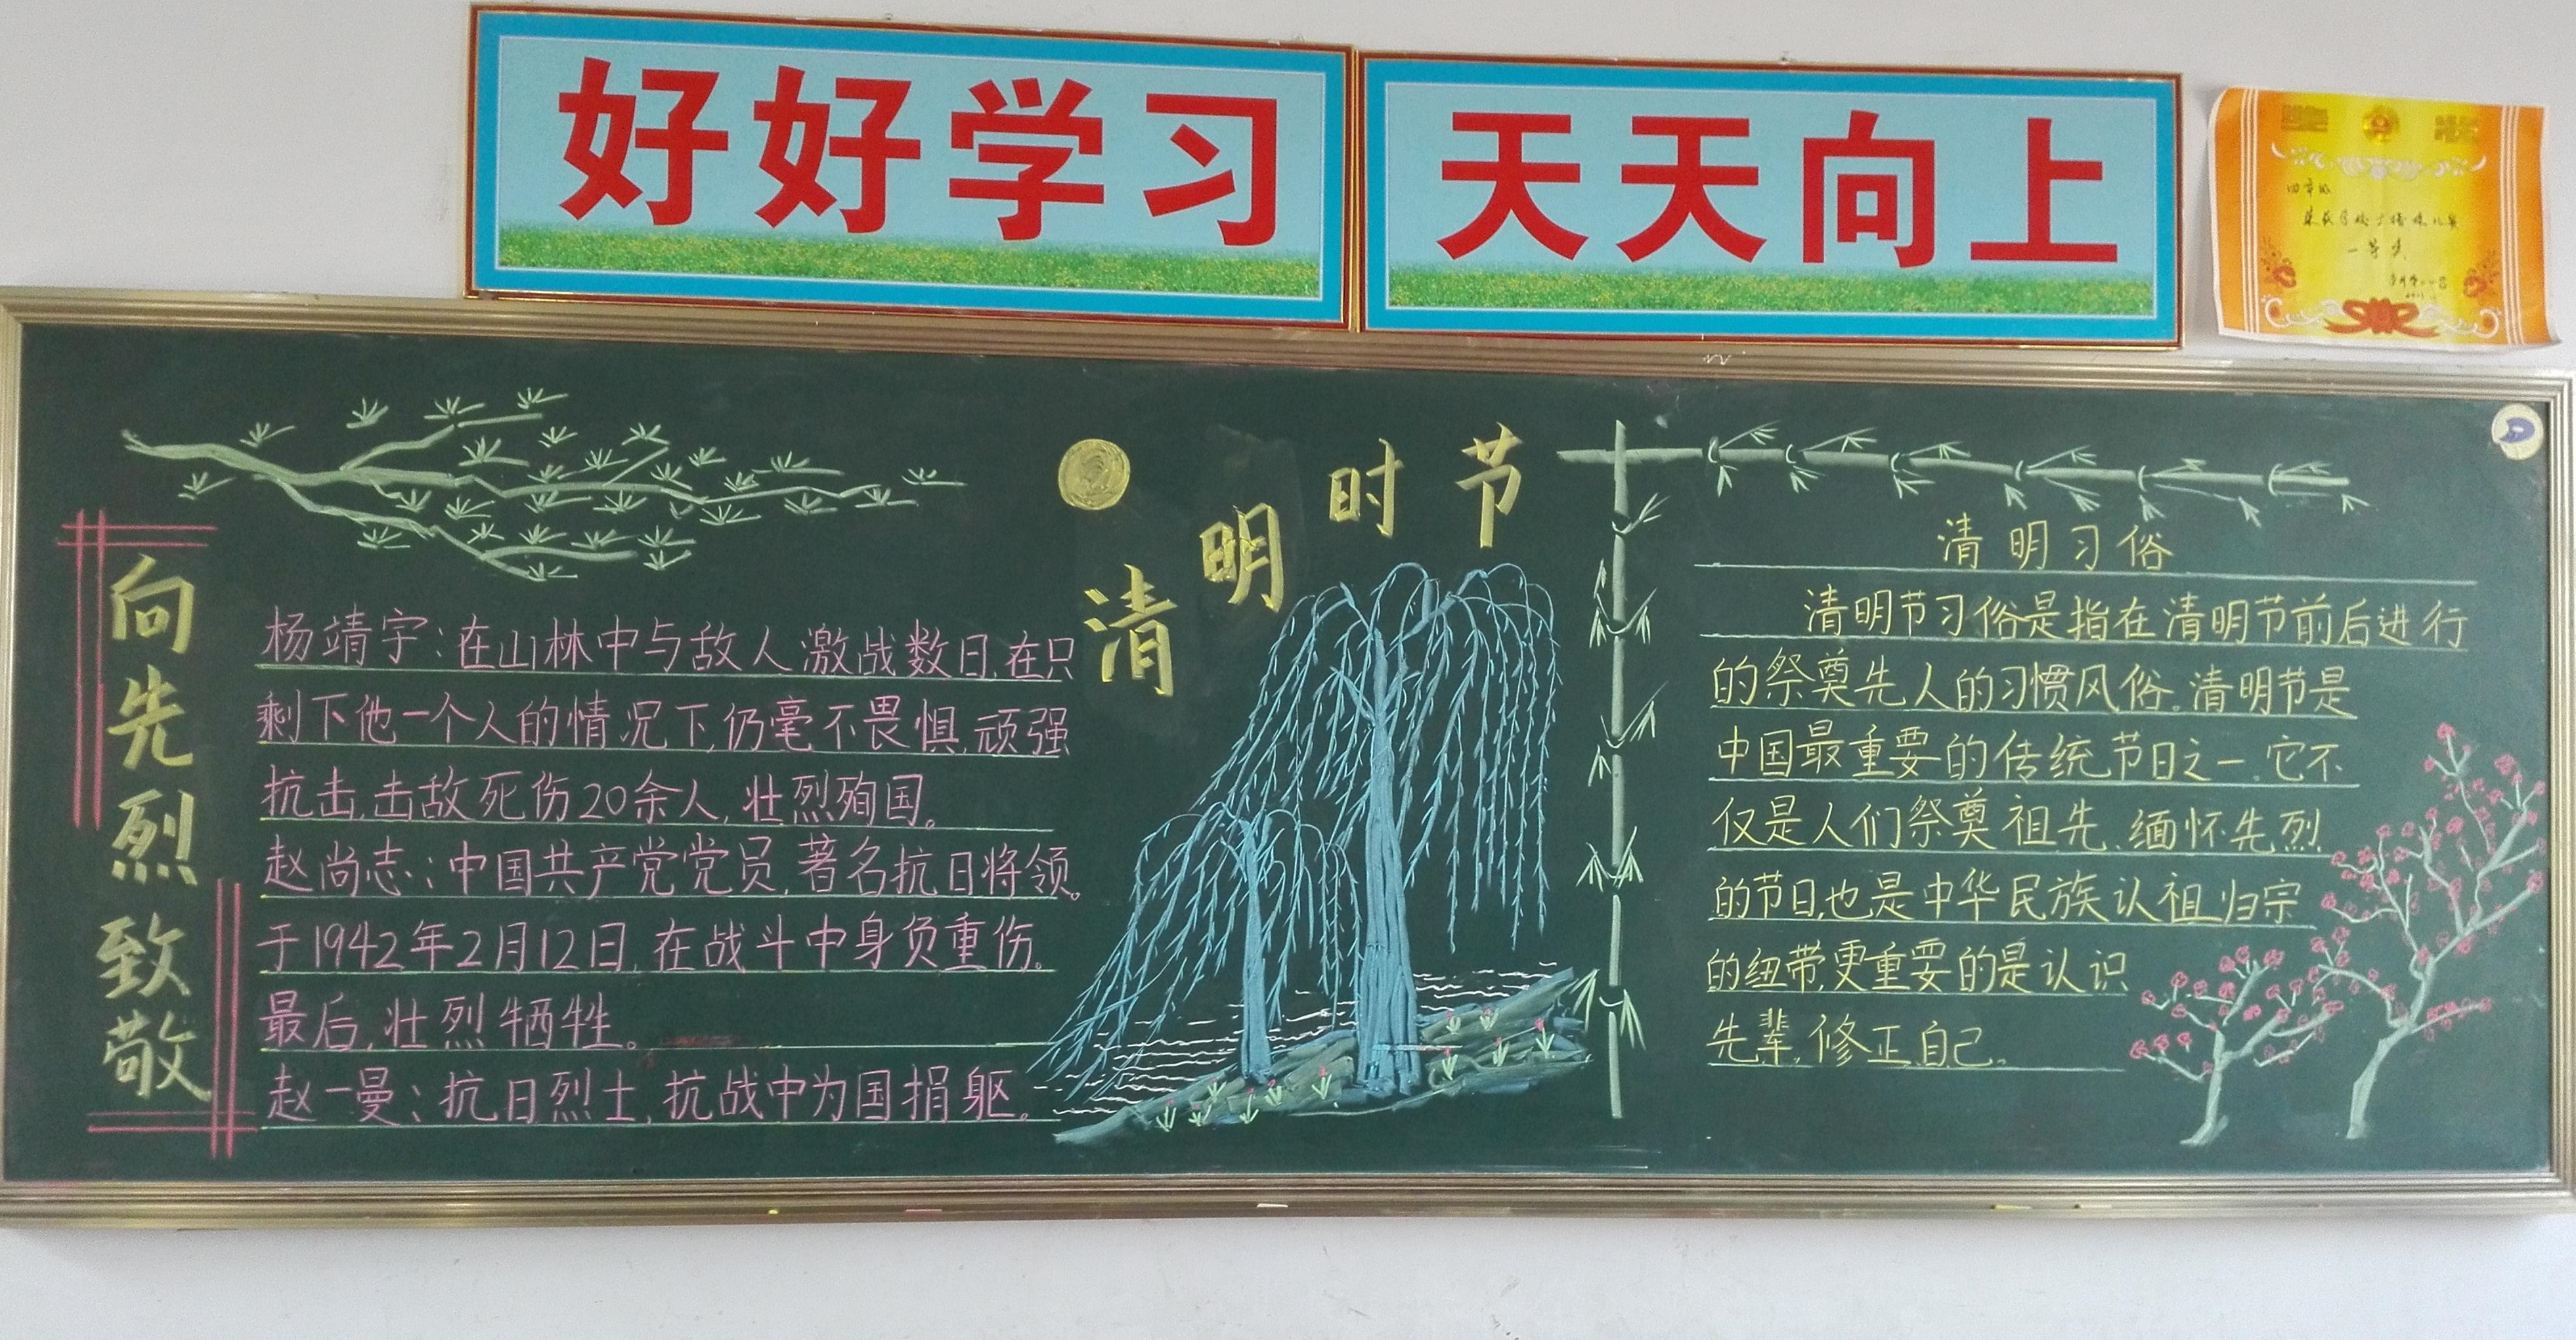 好好学习
天天向上
四年级
一等奖
向先烈致敬
杨靖宇:在山林中与敌人激战数日,在只
剩下他一个人的情况下,仍毫不畏惧,顽强
抗击,击敌死伤20余人,壮烈殉国。
赵尚志:中国共产党党员,著名抗日将领。
于1942年2月12日,在战斗中身负重伤。
最后,壮烈牺牲。
赵一曼:抗日烈士,抗战中为国捐躯。
清明时节
清明习俗
清明节习俗是指在清明节前后进行
的祭奠先人的习惯风俗。清明节是
中国最重要的传统节日之一。它不
仅是人们祭奠祖先、缅怀先烈
的节日,也是中华民族认祖归宗
的纽带,更重要的是认识
先辈,修正自己。